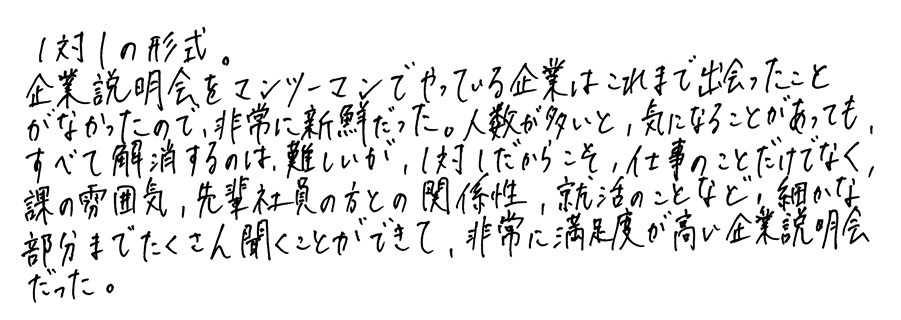 1対1の形式。
企業説明会をマンツーマンでやっている企業はこれまで出会ったこと
がなかったので、非常に新鮮だった。人数が多いと、気になることがあっても、
すべて解消するのは、難しいが、1対1だからこそ、仕事のことだけでなく、
課の雰囲気、先輩社員の方との関係性、就活のことなど、細かな
部分までたくさん聞くことができて、非常に満足度が高い企業説明会
だった。